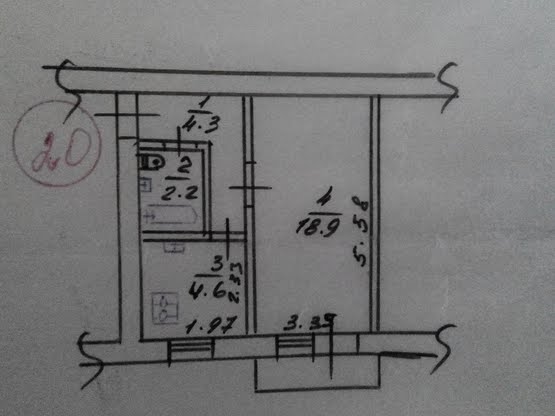 1
4.3
2.0
2
2.2
4
18.9
5.58
3
4.6
2.33
1.97
3.39